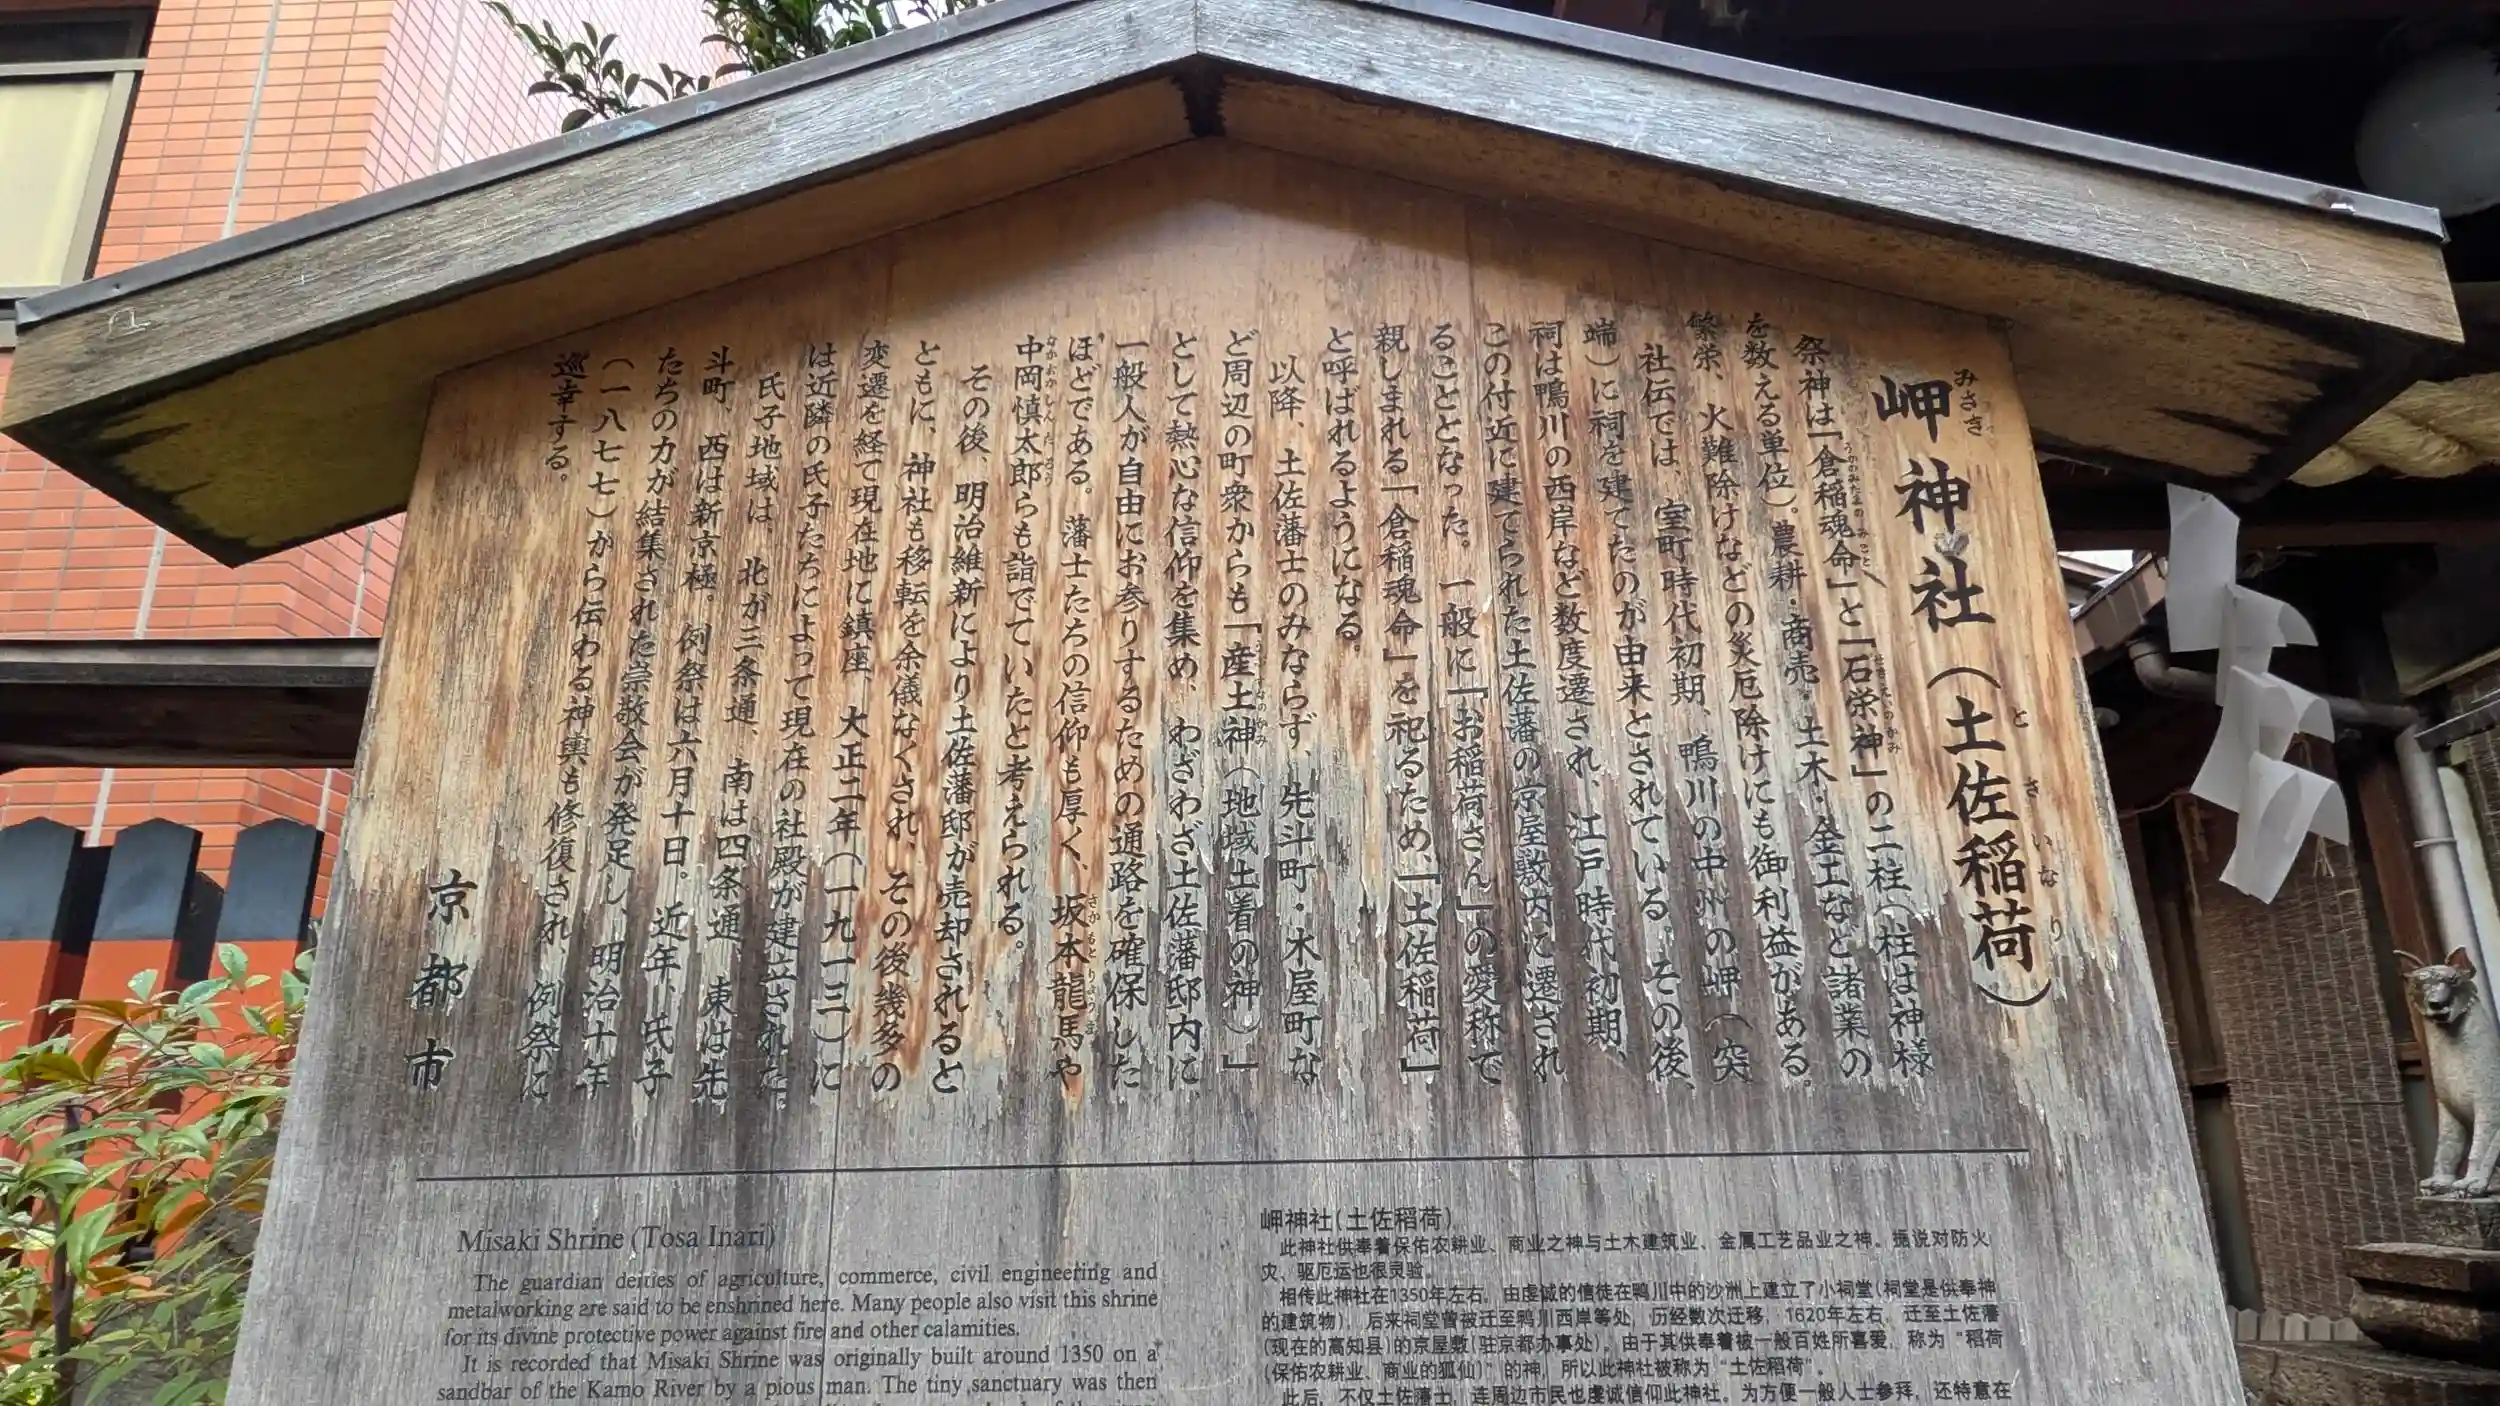 岬神社（土佐稲荷）
祭神は「倉稲魂命」と「石栄神」の二柱（柱は神様
を数える単位）。農耕・商売・土木・金工など諸業の
繁栄、火難除けなどの災厄除けにも御利益がある。
社伝では、室町時代初期、鴨川の中州の岬（突
端）に祠を建てたのが由来とされている。その後、
祠は鴨川の西岸など数度遷され、江戸時代初期、
この付近に建てられた土佐藩の京屋敷内に遷され
ることとなった。一般に「お稲荷さん」の愛称で
親しまれる「倉稲魂命」を祀るため、「土佐稲荷」
と呼ばれるようになる。
以降、土佐藩士のみならず、先斗町・木屋町な
ど周辺の町衆からも「産土神（地域土着の神）」
として熱心な信仰を集め、わざわざ土佐藩邸内に
一般人が自由にお参りするための通路を確保した
ほどである。藩士たちの信仰も厚く、坂本龍馬や
中岡慎太郎らも詣でていたと考えられる。
その後、明治維新により土佐藩邸が売却されると
ともに、神社も移転を余儀なくされ、その後幾多の
変遷を経て現在地に鎮座、大正二年（一九一三）に
は近隣の氏子たちによって現在の社殿が建立された
氏子地域は、北が三条通、南は四条通、東は先
斗町、西は新京極。例祭は六月十日。近年、氏子
たちの力が結集された崇敬会が発足し、明治十年
（一八七七）から伝わる神輿も修復され、例祭に
巡幸する。
京都市
Misaki Shrine (Tosa Inari)
The guardian deities of agriculture, commerce, civil engineering and
metalworking are said to be enshrined here. Many people also visit this shrine
for its divine protective power against fire and other calamities.
It is recorded that Misaki Shrine was originally built around 1350 on a
sandbar of the Kamo River by a pious man. The tiny sanctuary was then
岬神社（土佐稻荷）
此神社供奉着保佑农耕业、商业之神与土木建筑业、金属工艺品业之神。据说对防火
灾、驱厄运也很灵验。
相传此神社在1350年左右，由虔诚的信徒在鸭川中的沙洲上建立了小祠堂（祠堂是供奉神
的建筑物），后来祠堂曾被迁至鸭川西岸等处，历经数次迁移，1620年左右，迁至土佐藩
（现在的高知县）的京屋敷（驻京都办事处）。由于其供奉着被一般百姓所喜爱，称为“稻荷
（保佑农耕业、商业的狐仙）”的神，所以此神社被称为“土佐稻荷”。
此后，不仅土佐藩士，连周边市民也虔诚信仰此神社。为方便一般人士参拜，还特意在